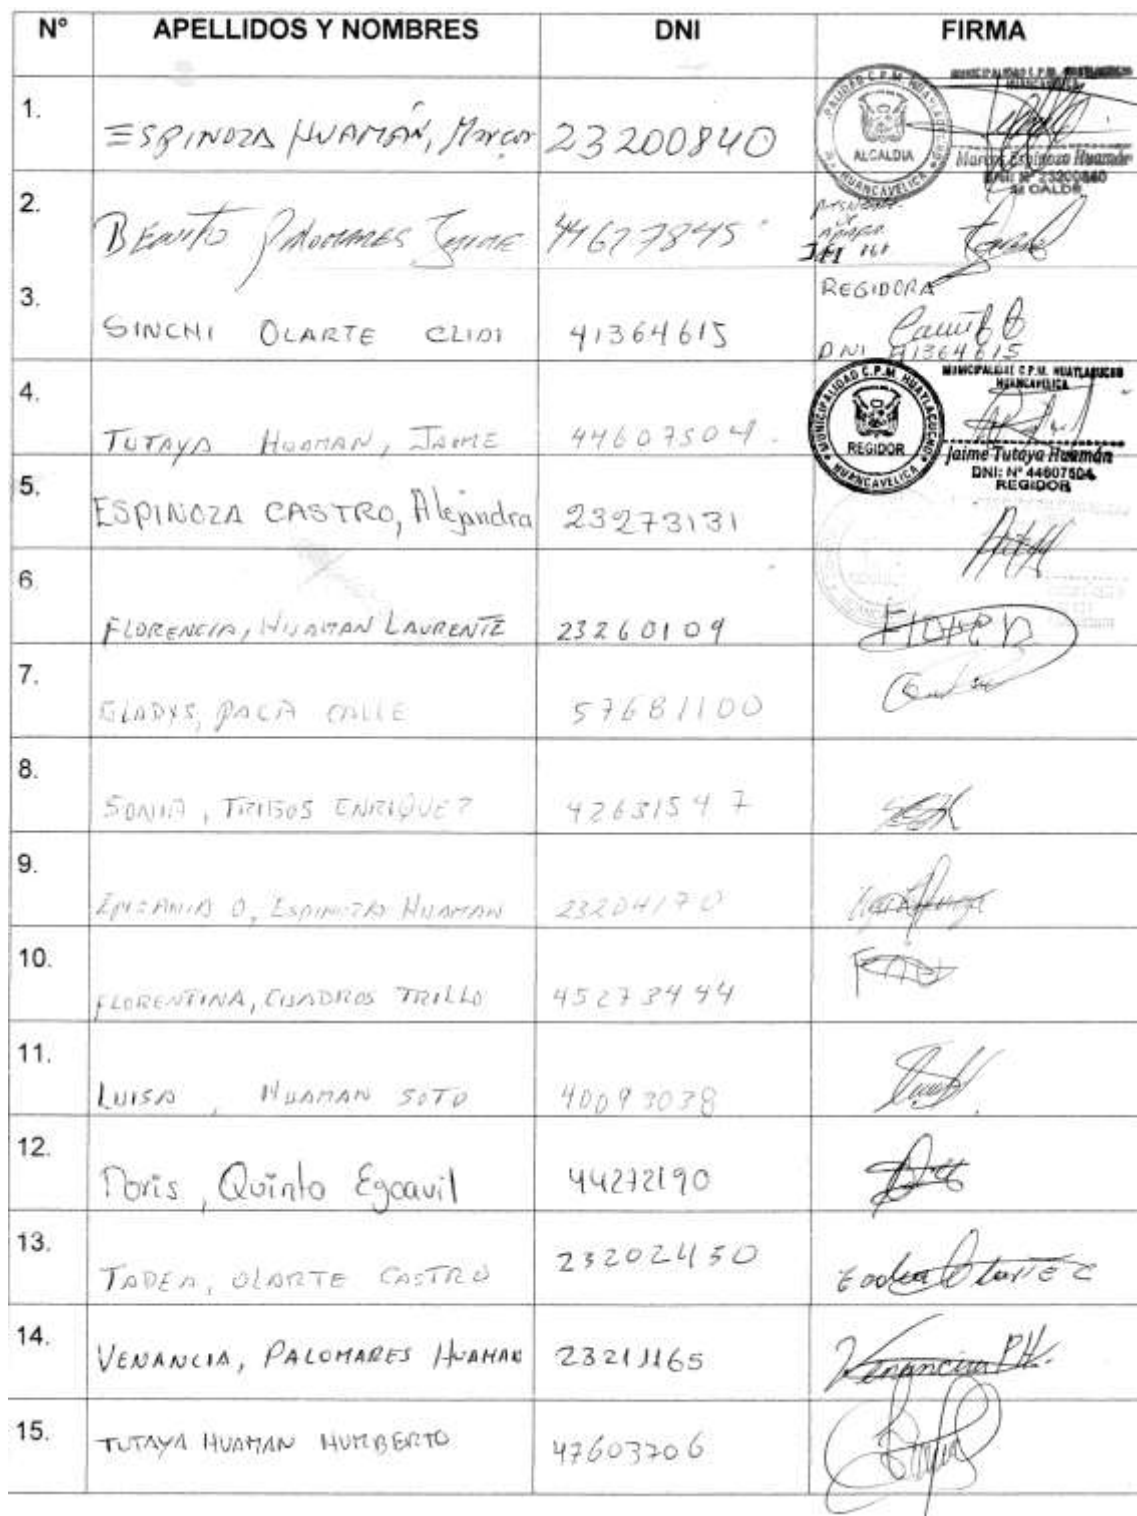 N° APELLIDOS Y NOMBRES DNI FIRMA
1. ESPINOZA HUAMÁN, Marcos 23200840
MUNICIPALIDAD C.P.M. HUAYLACUCHO
HUANCAVELICA
ALCALDIA
Marcos Espinoza Huamán
DNI: N° 23200840
ALCALDE
2. BENITO PALOMARES JAIME 44627845
3. SINCHI OLARTE CLIDI 41364615
REGIDORA
DNI 41364615
4. TUTAYA HUAMAN, JAIME 44607504.
MUNICIPALIDAD C.P.M. HUAYLACUCHO
HUANCAVELICA
REGIDOR
Jaime Tutaya Huamán
DNI: N° 44607504
REGIDOR
5. ESPINOZA CASTRO, Alejandra 23273131
6. FLORENCIA, HUAMAN LAURENTE 23260109
7. GLADYS, PACA CALLE 57681100
8. SONIA, ENRIQUEZ 42631547
9. ESPINOZA HUAMAN 23204170
10. FLORENTINA, CUADROS TRILLO 45273444
11. LUISA, HUAMAN SOTO 40093038
12. Doris, Quinto Egoavil 44272190
13. TADEA, OLARTE CASTRO 23202450 Tadea Olarte C
14. VENANCIA, PALOMARES HUAMAN 23211165 Venancia PH.
15. TUTAYA HUAMAN HUMBERTO 47603706